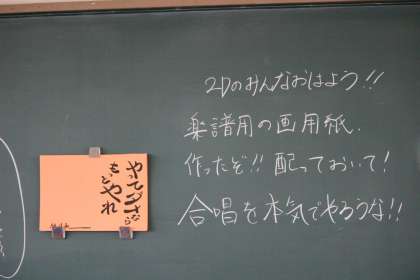 2Dのみんなおはよう!!
楽譜用の画用紙.
作ったぞ!! 配っておいて!
合唱を本気でやろうな!!
やってダメなら
もっとやれ